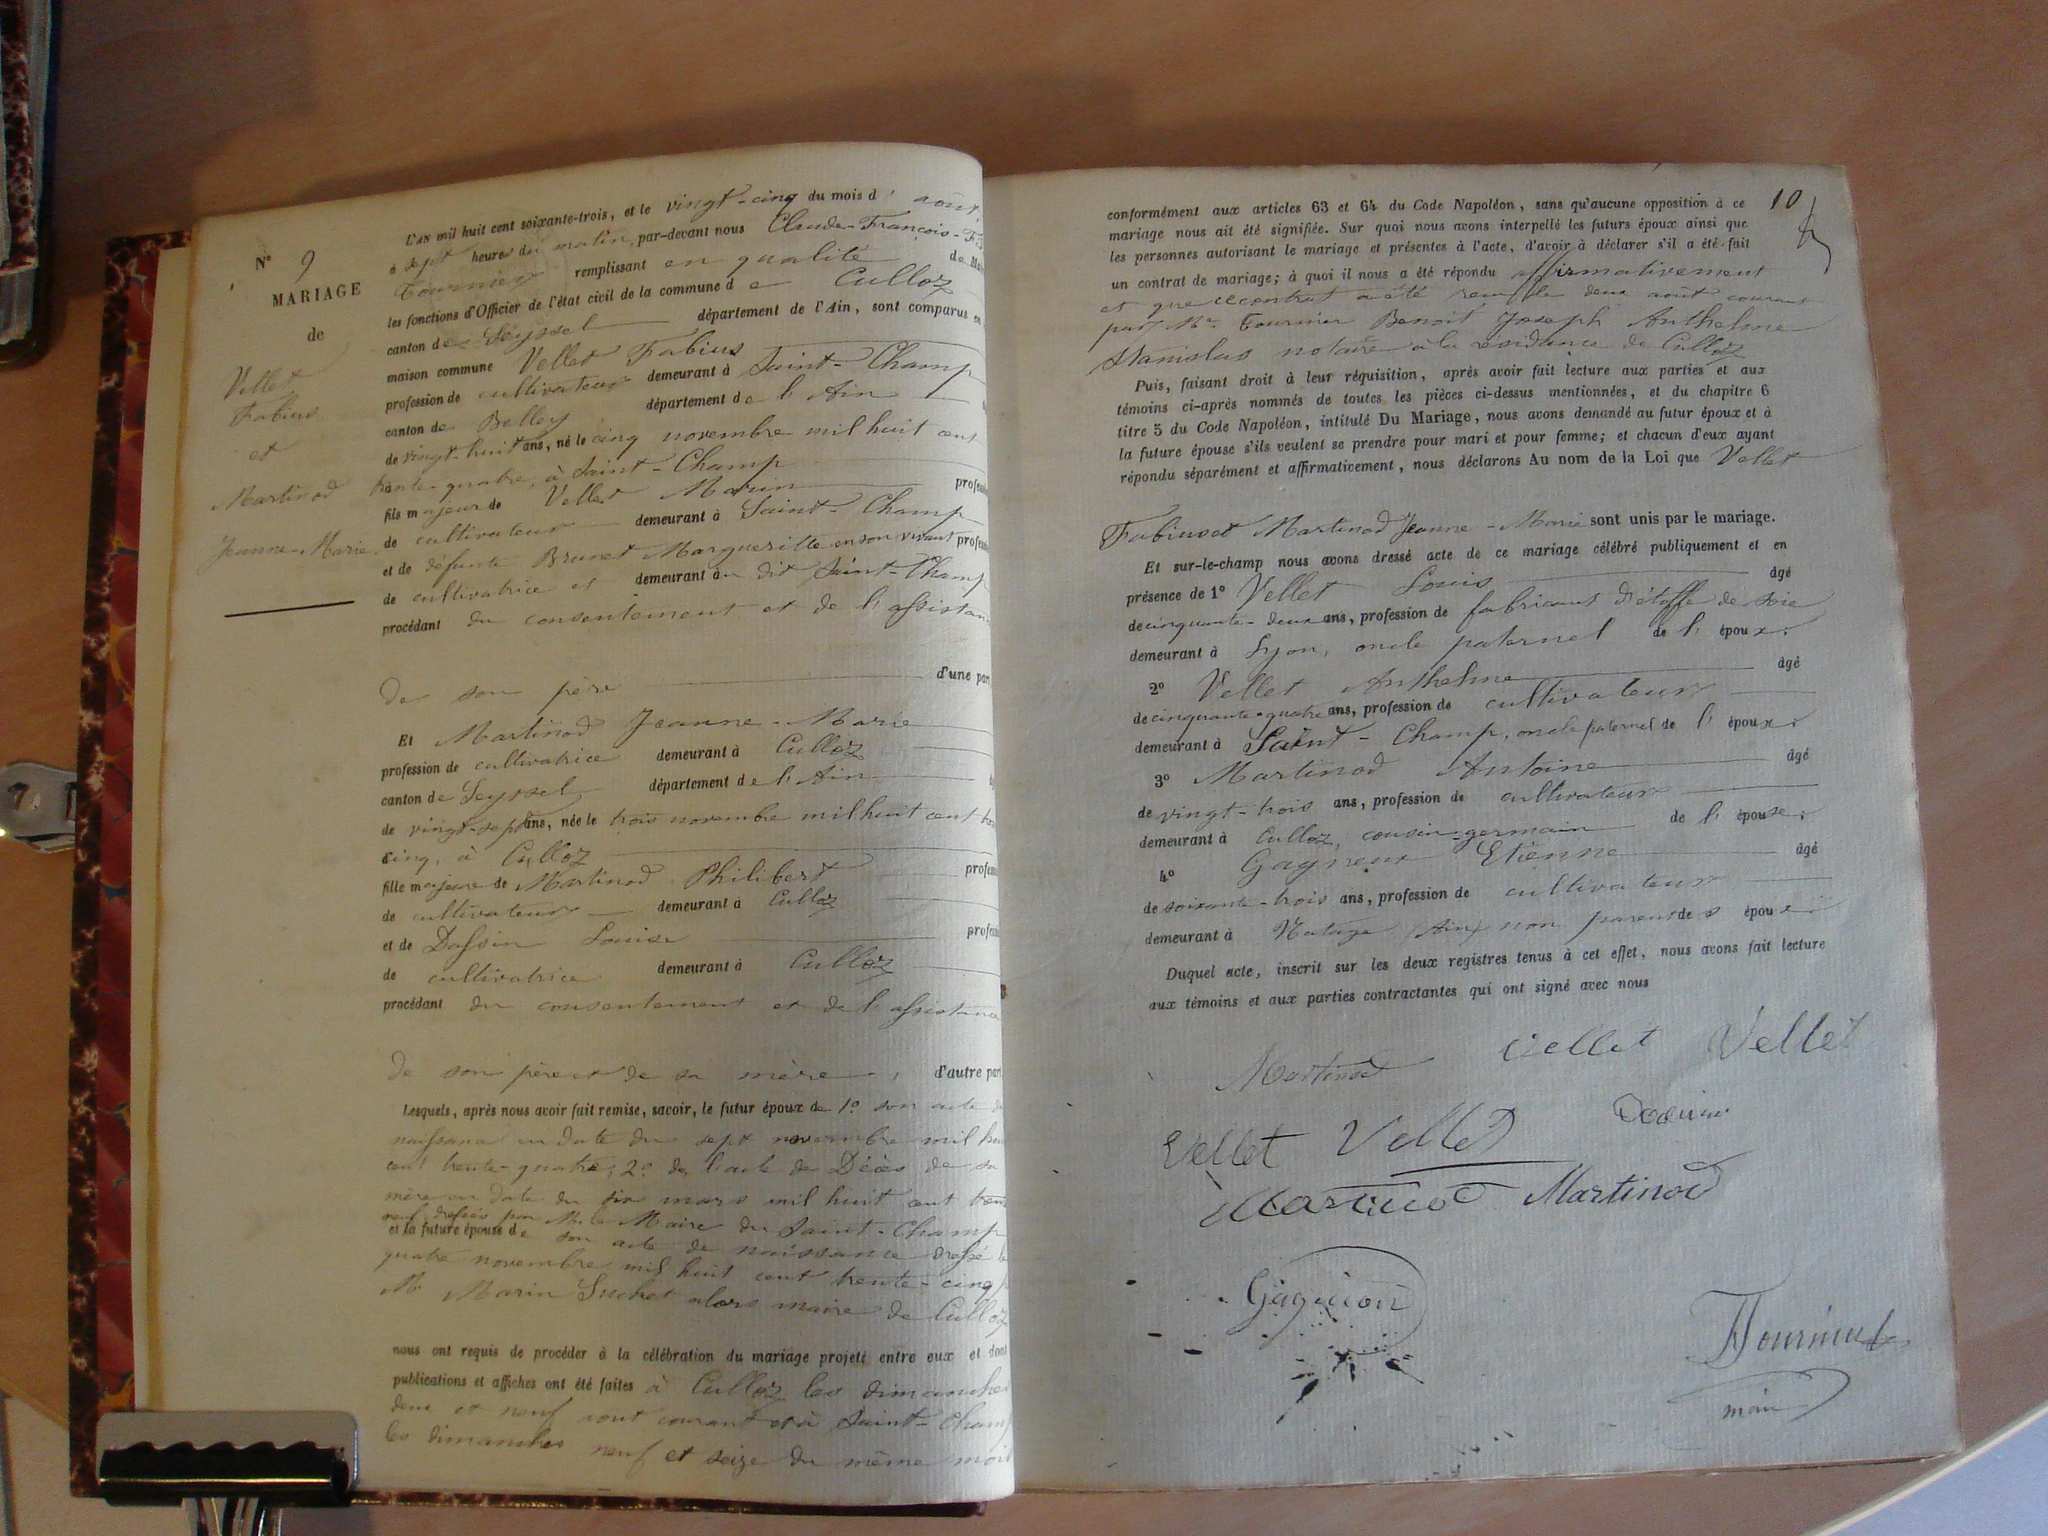 N° 9
MARIAGE
de
Vellet
Fabius
et
Martinod
Jeanne-Marie
L'AN mil huit cent soixante-trois, et le vingt-cinq du mois d' août,
à sept heures du matin, par-devant nous Claude-François-
Fournier remplissant en qualité de
les fonctions d'Officier de l'état civil de la commune de Culloz
canton de Seyssel département de l'Ain, sont comparus en
maison commune Vellet Fabius
profession de cultivateur demeurant à Saint-Champ
canton de Belley département de l'Ain
de vingt-huit ans, né le cinq novembre mil huit cent
trente-quatre, à Saint-Champ
fils majeur de Vellet Marin
de cultivateur demeurant à Saint-Champ
et de défunte Brunet Margueritte en son vivant
de cultivatrice et demeurant au dit Saint-Champ
procédant du consentement et de l'
de son père d'une part
Et Martinod Jeanne-Marie
profession de cultivatrice demeurant à Culloz
canton de Seyssel département de l'Ain
de vingt-sept ans, née le trois novembre mil huit cent
cinq, à Culloz
fille majeure de Martinod Philibert
de cultivateur demeurant à Culloz
et de Dassin Louise
de cultivatrice demeurant à Culloz
procédant du consentement et de l'assistance
de son père et de sa mère, d'autre part
Lesquels, après nous avoir fait remise, savoir, le futur époux de 1° son acte de
naissance en date du sept novembre mil
cent trente-quatre; 2° de l'acte de Décès de sa
mère en date du six mars mil huit cent
neuf dressés par Mr le Maire du Saint-Champ
et la future épouse de son acte de naissance dressé le
quatre novembre mil huit cent trente-cinq
Mr Marin Suchet alors maire de Culloz
nous ont requis de procéder à la célébration du mariage projeté entre eux et dont
publications et affiches ont été faites à Culloz les dimanches
deux et neuf aout courant et à Saint-Champ
les dimanches neuf et seize du même mois
10
conformément aux articles 63 et 64 du Code Napoléon, sans qu'aucune opposition à ce
mariage nous ait été signifiée. Sur quoi nous avons interpellé les futurs époux ainsi que
les personnes autorisant le mariage et présentes à l'acte, d'avoir à déclarer s'il a été fait
un contrat de mariage; à quoi il nous a été répondu affirmativement
et que ce contrat a été le deux août courant
par Mr Fournier Benoit Joseph Anthelme
Stanislas notaire à la résidance de Culloz
Puis, faisant droit à leur réquisition, après avoir fait lecture aux parties et aux
témoins ci-après nommés de toutes les pièces ci-dessus mentionnées, et du chapitre 6
titre 5 du Code Napoléon, intitulé Du Mariage, nous avons demandé au futur époux et à
la future épouse s'ils veulent se prendre pour mari et pour femme; et chacun d'eux ayant
répondu séparément et affirmativement, nous déclarons Au nom de la Loi que Vellet
Fabius et Martinod Jeanne-Marie sont unis par le mariage.
Et sur-le-champ nous avons dressé acte de ce mariage célébré publiquement et en
présence de 1° Vellet Louis âgé
de cinquante-deux ans, profession de fabricant d'étoffe de soie
demeurant à Lyon, oncle paternel de l'époux.
2° Vellet Anthelme âgé
de cinquante-quatre ans, profession de cultivateur
demeurant à Saint-Champ, oncle paternel de l'époux.
3° Martinod Antoine âgé
de vingt-trois ans, profession de cultivateur
demeurant à Culloz, cousin-germain de l'épouse.
4° Gagneux Etienne âgé
de soixante-trois ans, profession de cultivateur
demeurant à Natage (Ain) non parent des époux.
Duquel acte, inscrit sur les deux registres tenus à cet effet, nous avons fait lecture
aux témoins et aux parties contractantes qui ont signé avec nous
Martinod Vellet Vellet
Vellet Vellet
Martinod Martinod
Fournier